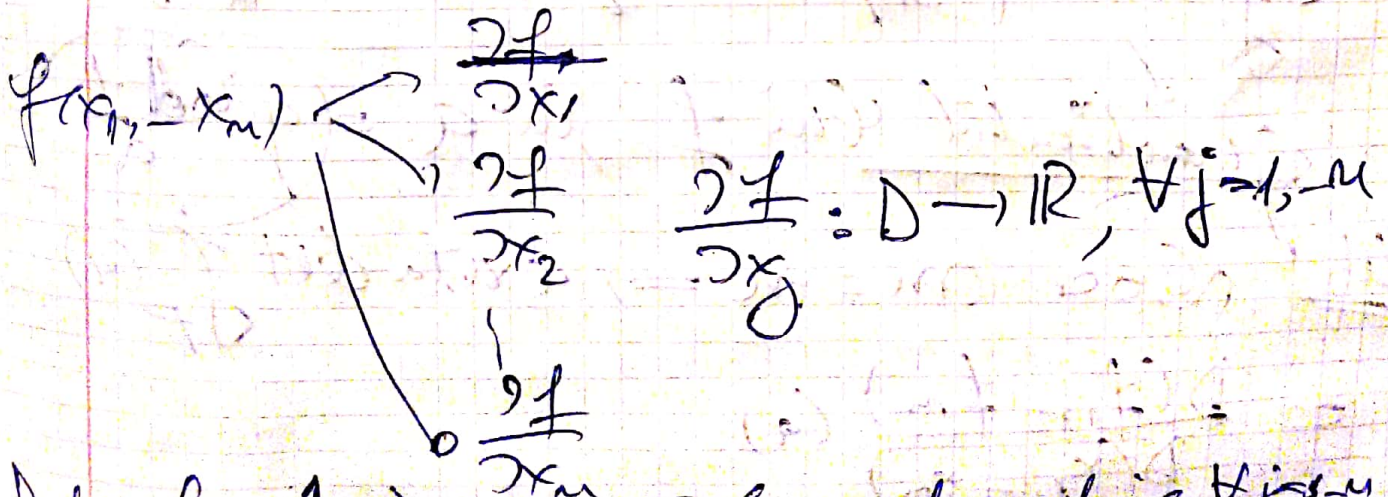 f(x₁, … xₙ)
∂f/∂x₁
∂f/∂x₂
∂f/∂xⱼ : D → ℝ, ∀j=1,…n
∂f/∂xₙ